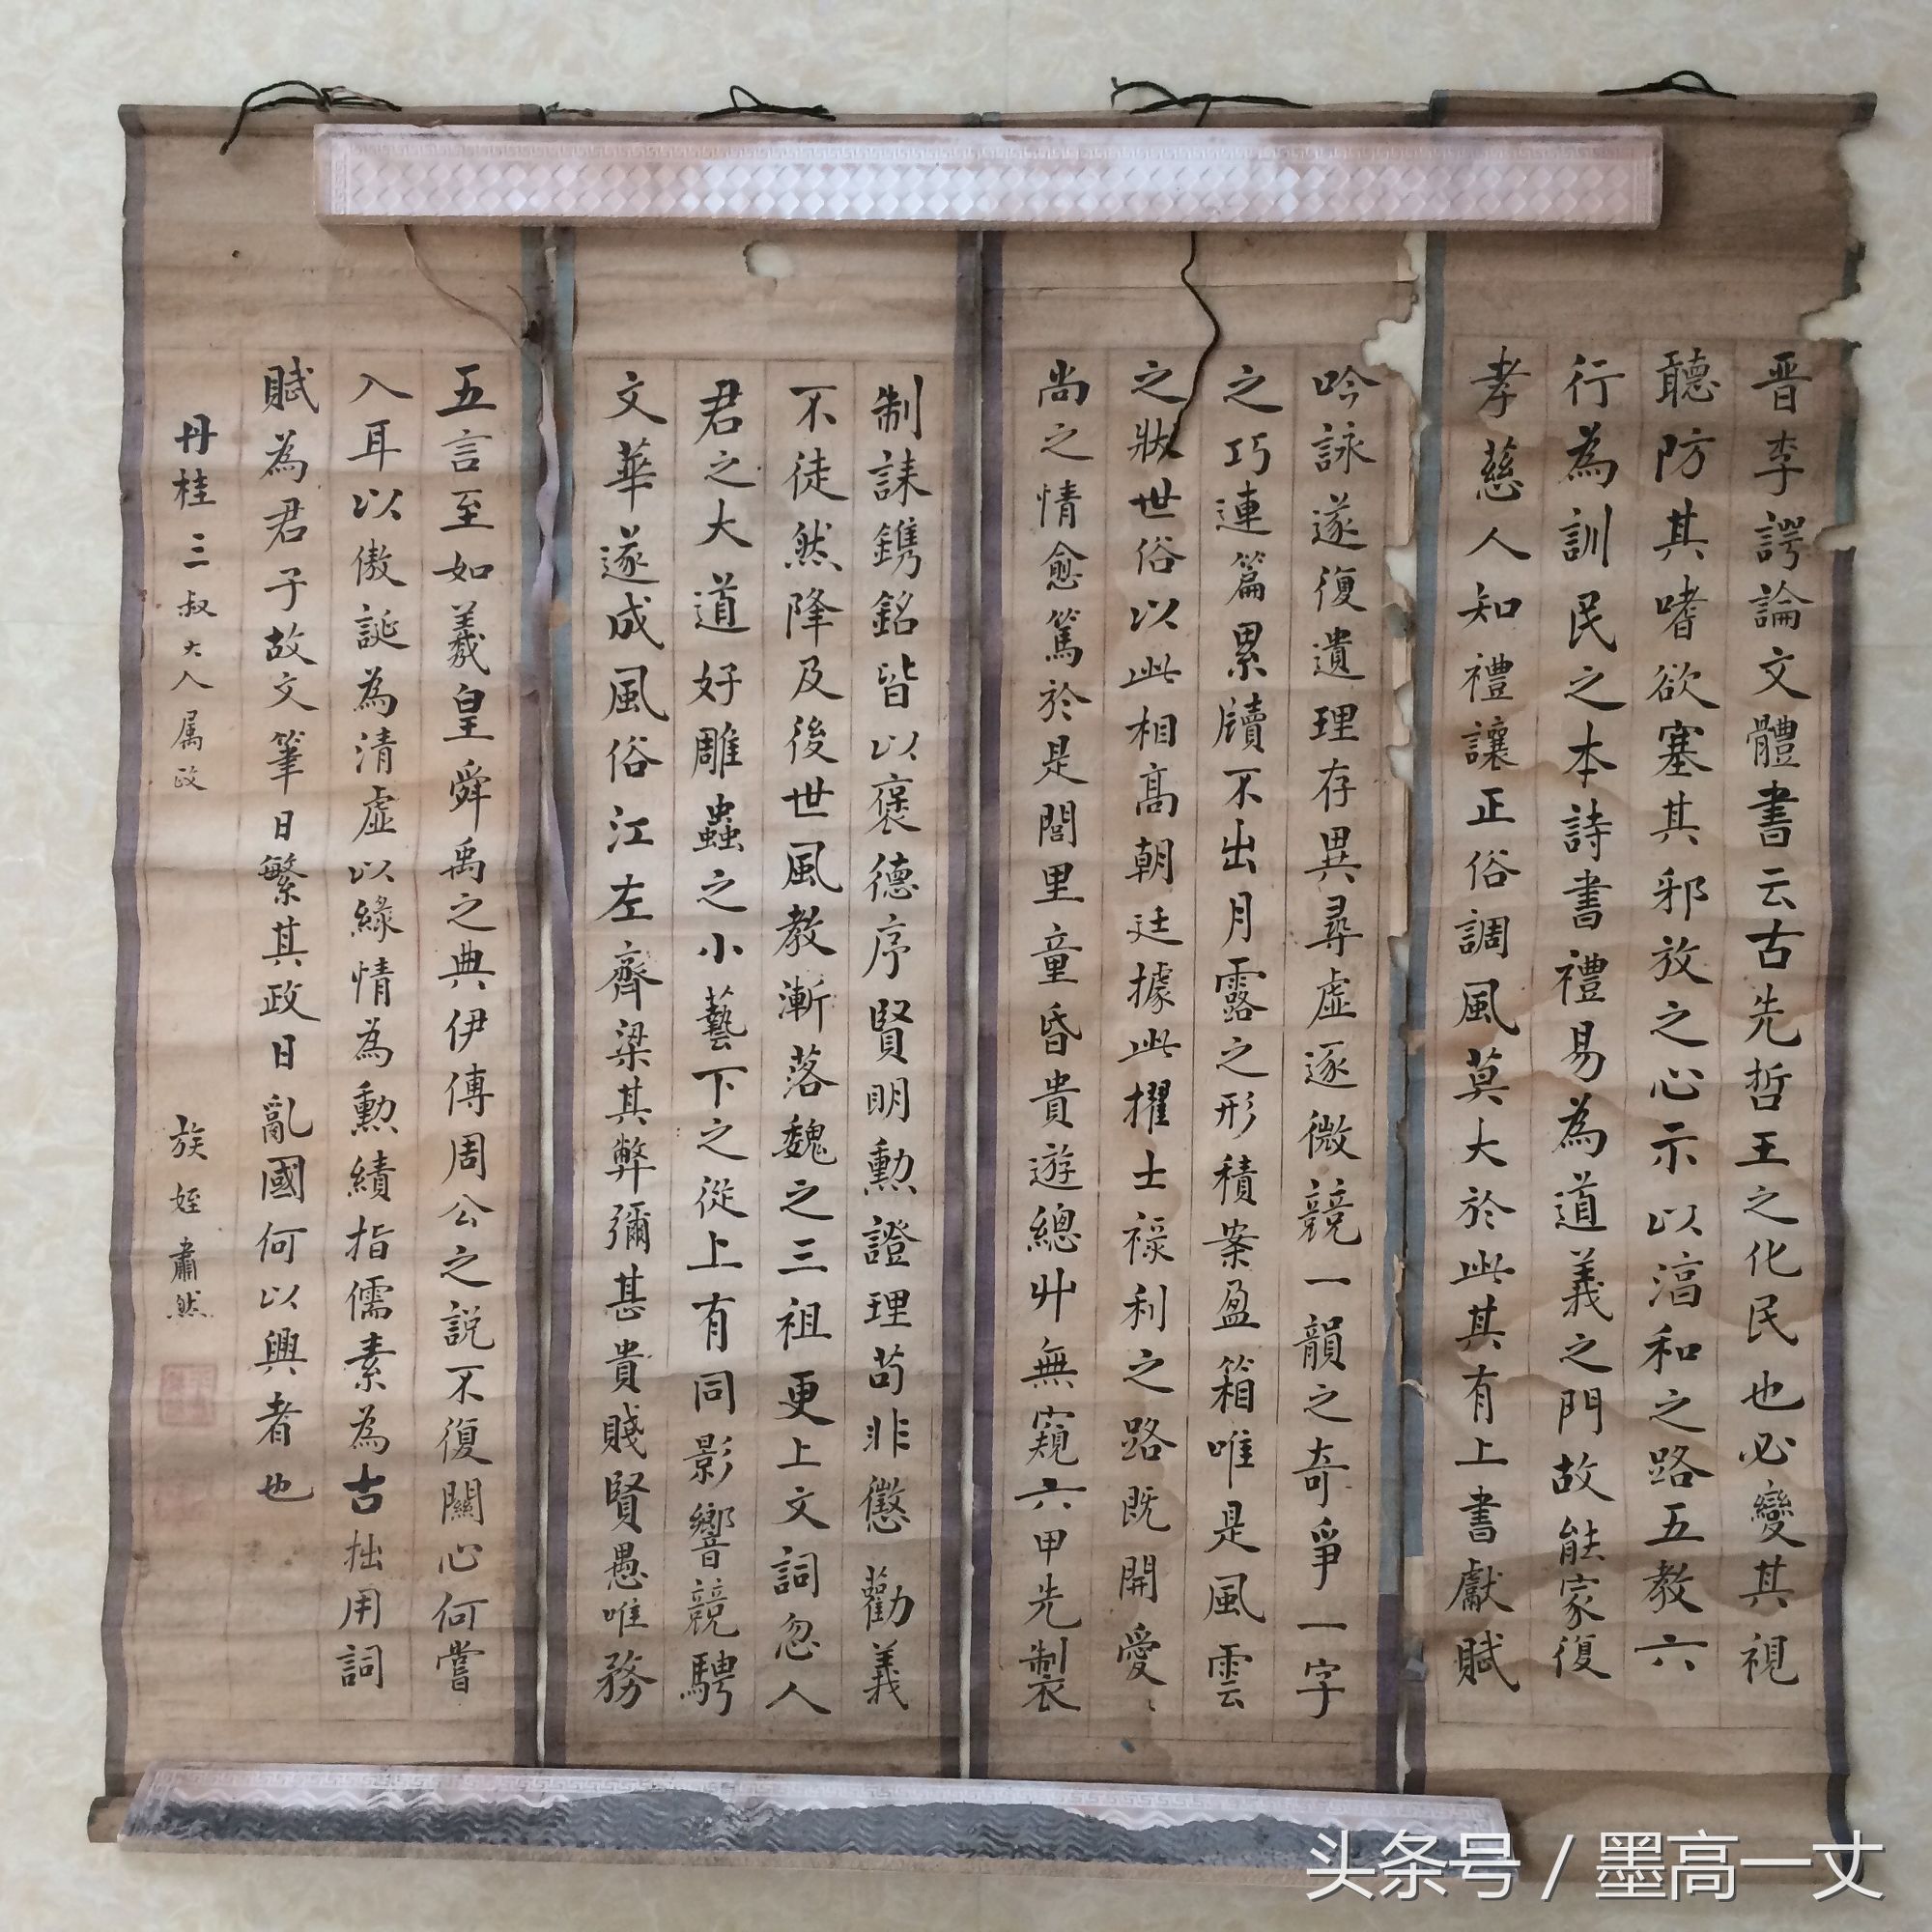 晋李諤論文體書云古先哲王之化民也必變其視
聽防其嗜欲塞其邪放之心示以湻和之路五教六
行為訓民之本詩書禮易為道義之門故能家復
孝慈人知禮讓正俗調風莫大於此其有上書獻賦
制誄鐫銘皆以褒德序賢明勳證理苟非懲勸義
不徒然降及後世風教漸落魏之三祖更上文詞忽人
君之大道好雕蟲之小藝下之從上有同影響競騁
文華遂成風俗江左齊梁其弊彌甚貴賤賢愚唯務
吟詠遂復遺理存異尋虛逐微競一韻之奇爭一字
之巧連篇累牘不出月露之形積案盈箱唯是風雲
之狀世俗以此相高朝廷據此擢士祿利之路既開愛
尚之情愈篤於是閭里童昏貴遊總丱無窺六甲先製
五言至如羲皇舜禹之典伊傅周公之説不復關心何嘗
入耳以傲誕為清虛以緣情為勳績指儒素為古拙用詞
賦為君子故文筆日繁其政日亂國何以興者也
丹桂三叔大人属政
族姪肅然
头条号 / 墨高一丈